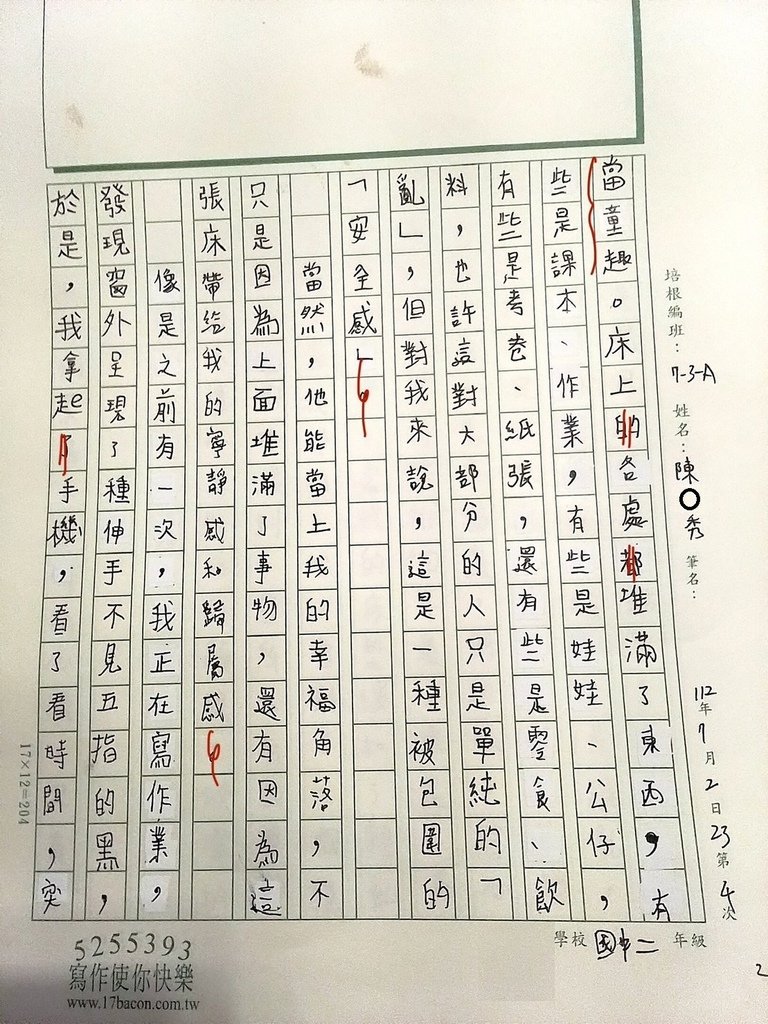 培根編班：7-3-A 姓名：陳○秀 筆名：
112年7月2日23第4次
學校 國中二 年級
當童趣。床上的各處都堆滿了東西，有
些是課本、作業，有些是娃娃、公仔，
有些是考卷、紙張，還有些是零食、飲
料，也許這對大部分的人只是單純的「
亂」，但對我來說，這是一種被包圍的
「安全感」
當然，他能當上我的幸福角落，不
只是因為上面堆滿了事物，還有因為這
張床帶給我的寧靜感和歸屬感
像是之前有一次，我正在寫作業，
發現窗外呈現了種伸手不見五指的黑，
於是，我拿起了手機，看了看時間，突
17×12=204
5255393
寫作使你快樂
www.17bacon.com.tw
2